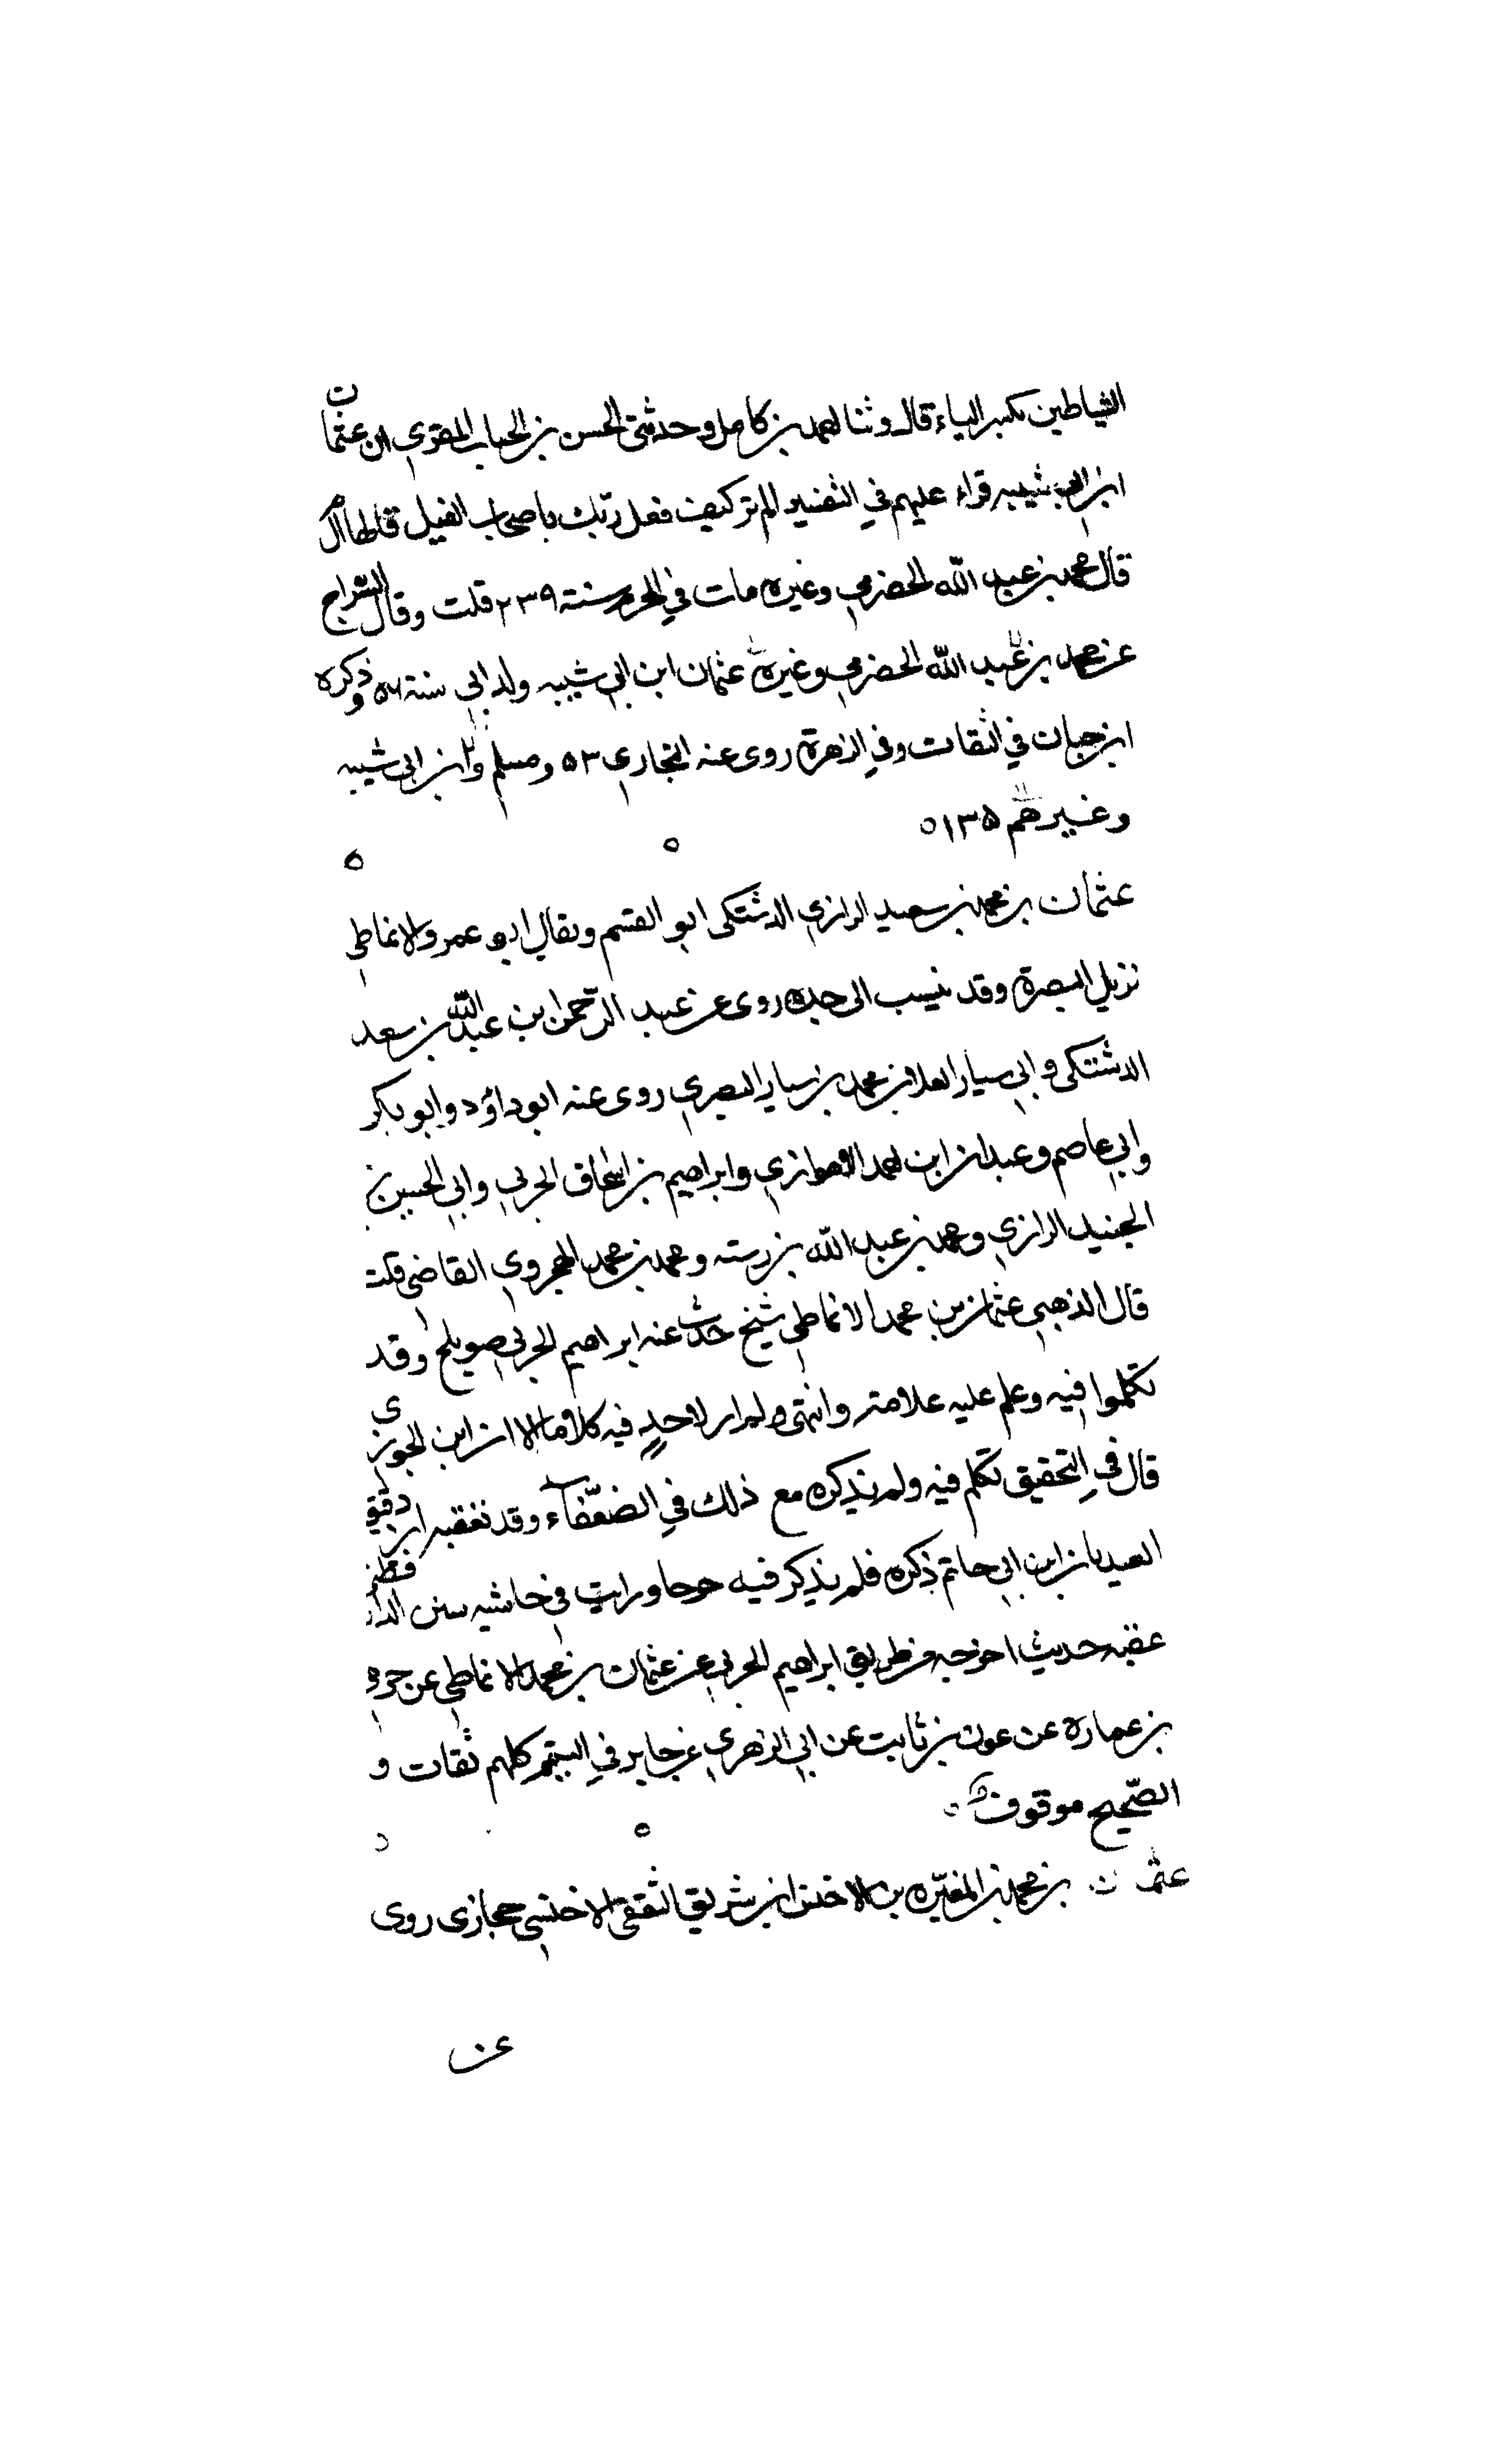 الشياطين بكسر الياء قال وثنا احمد بن كامل وحدثنى الحسن بن الحباب المقري ان عثمان
ابن ابي شيبه قراء عليهم في التفسير الم تر كيف فعل ربك باصحاب الفيل قالها ال
قال محمد بن عبد الله الحضرمي وغيره مات في المحرم سنة ٢٣٩ قلت وقال السراج
عن محمد بن عبد الله الحضرمي وغيره عثمان ابن ابي شيبه ولد ابي سنة ٥٦ وذكره
ابن حبان في الثقات وفي الزهرة روى عنه البخاري ٥٣ ومسلم وابن ابى شيبه
وغيرهم ١٣٥
عثمان بن محمد بن سعيد الرازي الدشتكى ابو القسم ويقال ابو عمرو الانماطي
نزيل البصرة وقد ينسب الى جده روى عن عبد الرحمن ابن عبد الله بن سعد
الدشتكى وابي سيار العلا بن محمد بن سيار البصري روى عنه ابو داؤد وابو بكر
وابي عاصم وعبدان ابن احمد الاهوازي وابراهيم بن اسحاق الحربي وابي الحسين بن
الجنيد الرازي ومحمد بن عبد الله بن رسته ومحمد بن محمد القاضى قلت
قال الذهبي عثمان بن محمد الانماطي شيخ حدث عنه ابراهيم الحربي صويلح وقد
تكلموا فيه وعلم عليه علامة وانتهى ولم ار لاحدٍ فيه كلاما الا ان ابن الجوزى
قال في التحقيق تكلم فيه ولم يذكره مع ذلك في الضعفاء وقد تعقبه ابن دقيق
العيد بان ابن ابي حاتم ذكره فلم يذكر فيه جرحا ورايت في حاشيه سنن الدارقطني
عقبه حديث اخرجه من طريق ابراهيم الحربي عن عثمان بن محمد الانماطي عن حرمي
بن عماره عن عون بن ثابت عن ابي الزهري عن جابر في التيمم كلهم ثقات و
الصحيح موقوف
عثمان بن محمد بن المغيره بن الاخنس ابن شريق الثقفي الاخنسي حجازى روى
عن